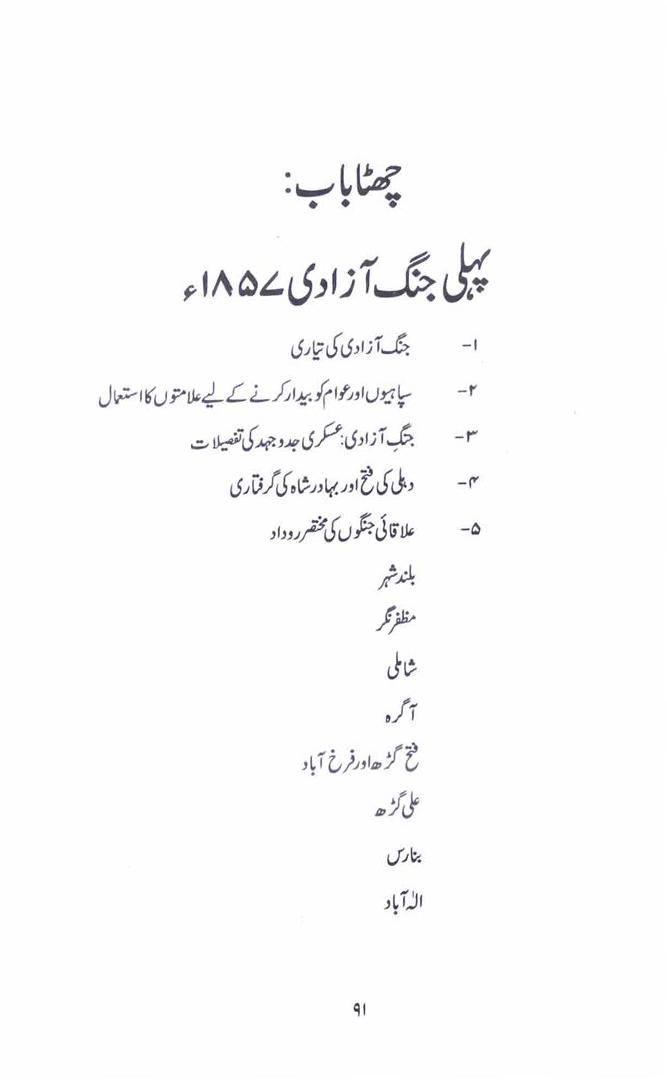 چھٹا باب:
پہلی جنگ آزادی ۱۸۵۷ء
۱- جنگ آزادی کی تیاری
۲- سپاہیوں اور عوام کو بیدار کرنے کے لیے علامتوں کا استعمال
۳- جنگِ آزادی: عسکری جدوجہد کی تفصیلات
۴- دہلی کی فتح اور بہادر شاہ کی گرفتاری
۵- علاقائی جنگوں کی مختصر روداد
بلند شہر
مظفر نگر
شاملی
آگرہ
فتح گڑھ اور فرخ آباد
علی گڑھ
بنارس
الٰہ آباد
۹۱